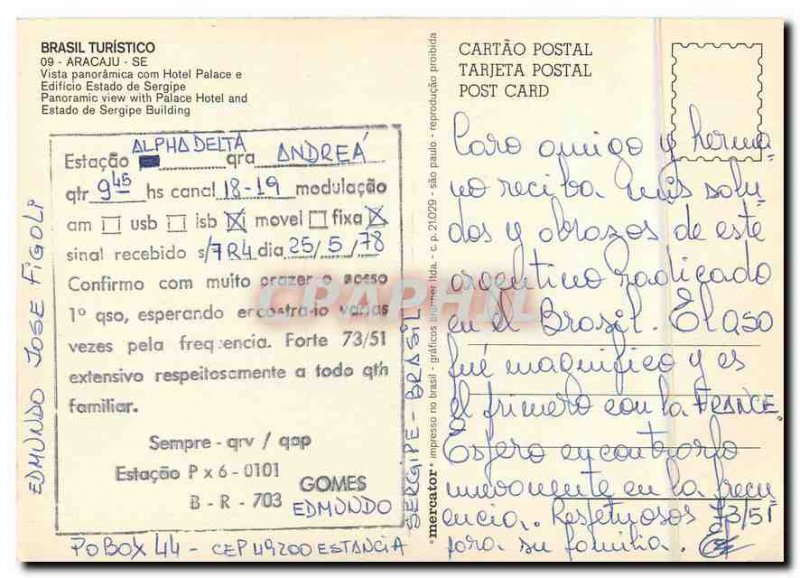 BRASIL TURÍSTICO
09 - ARACAJU - SE
Vista panorâmica com Hotel Palace e
Edifício Estado de Sergipe
Panoramic view with Palace Hotel and
Estado de Sergipe Building
ALPHA DELTA
Estação qra ANDREÁ
qtr 9 45 hs canal 18-19 modulação
am usb isb movel fixa
sinal recebido s/7 R4 dia 25/5/78
Confirmo com muito prazer o nosso
1º qso, esperando encontra-lo varias
vezes pela frequencia. Forte 73/51
extensivo respeitosamente a todo qth
familiar.
Sempre - qrv / qap
Estação P x 6-0101
B - R - 703
GOMES
EDMUNDO
PO BOX 44 - CEP 49200 ESTANCIA
SERGIPE - BRASIL
EDMUNDO JOSE FIGOLI
mercator® impresso no brasil - gráficos ltda. - c.p. 21.029 - são paulo - reprodução proibida
CARTÃO POSTAL
TARJETA POSTAL
POST CARD
Caro amigo y herma-
no reciba mis salu-
dos y abrazos de este
argentino radicado
en el Brasil. El QSO
fué magnifico y es
el primero con la FRANCE.
Espero encontrarlo
nuevamente en la frecu-
encia.. Respetuosos 73/51
para su familia.
CPAPHIL